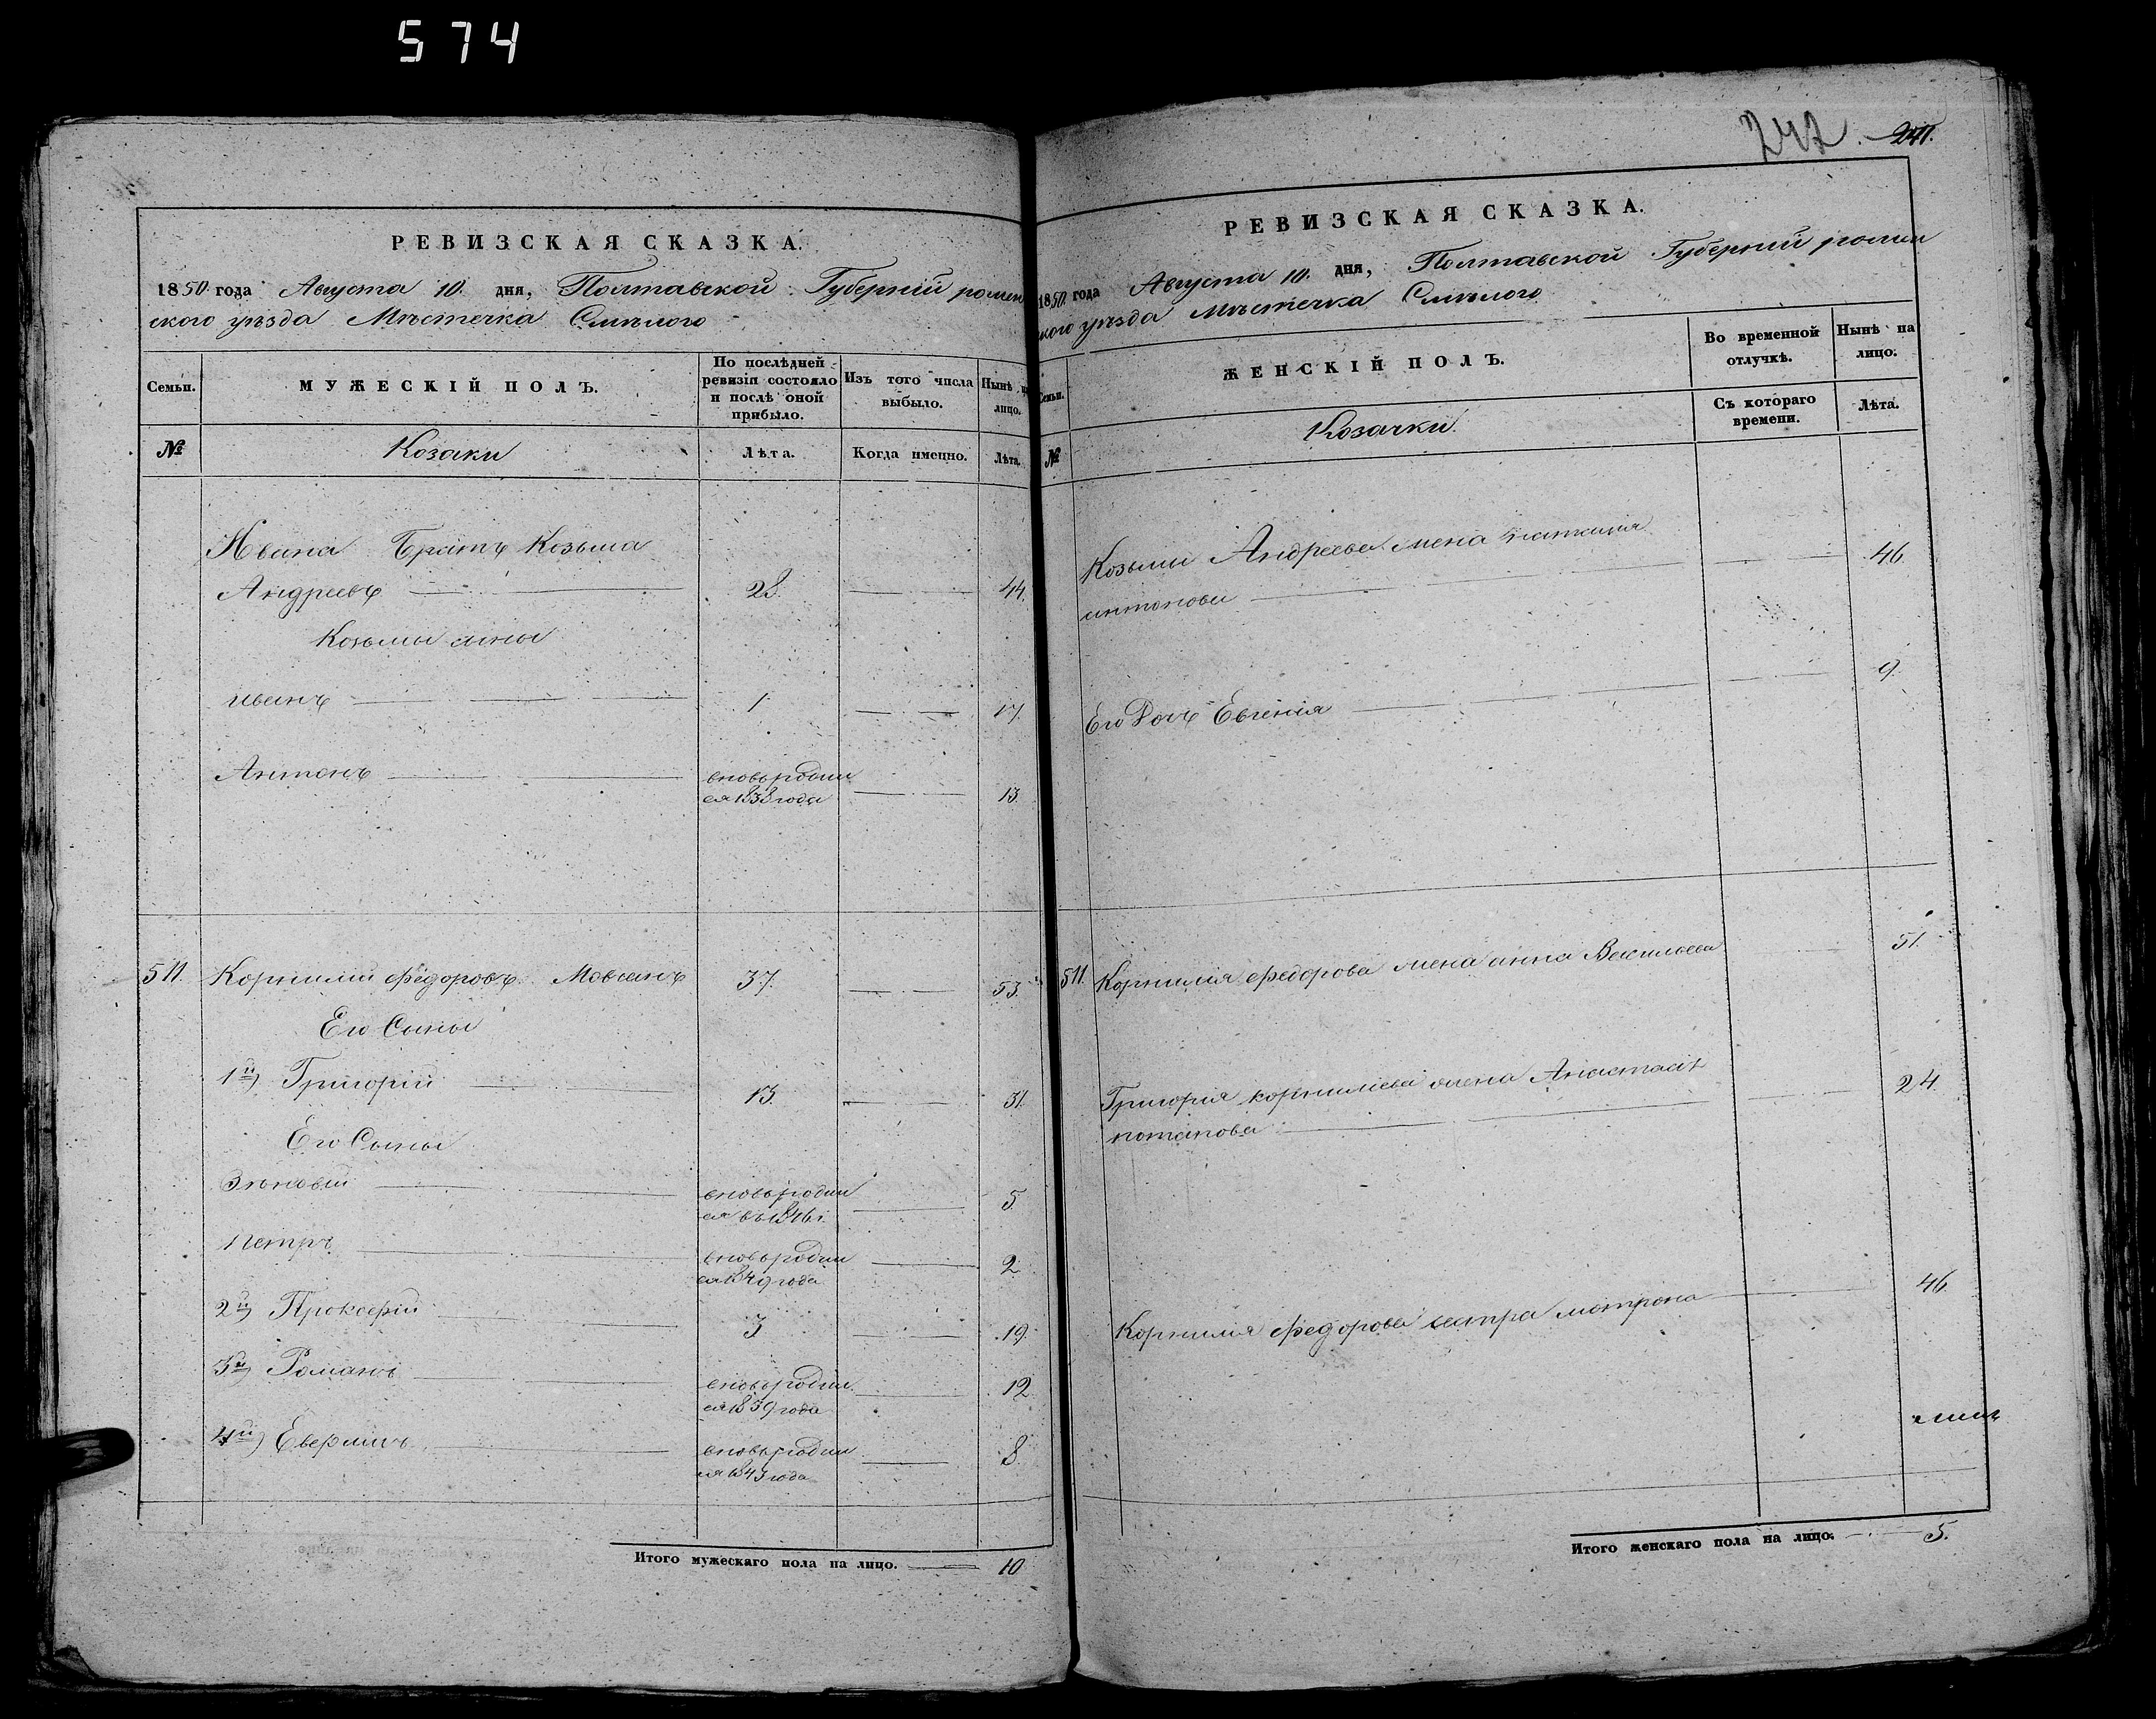 574
РЕВИЗСКАЯ СКАЗКА.
1850 года Августа 10. дня, Полтавской Губерніи ромен
ского уѣзда Мѣстечка Смѣлого
Семьи.
МУЖЕСКІЙ ПОЛЪ.
По послѣдней ревизіи состояло и послѣ оной прибыло.
Изъ того числа выбыло.
Нынѣ на лицо.
№
Козаки
Лѣта.
Когда именно.
Лѣта.
Ивана Братъ Козьма
Андреевъ 28. 44.
Козьмы сыны
Иванъ 1. 17.
Антонъ вновьродил
ся 1838 года 13.
511. Корнилий Федоровъ Мовчанъ 37. 53.
Его Сыны
1й) Григорій 15. 31.
Его Сыны
Зѣновій вновьродил
ся въ 1846 г. 5.
Петръ вновьродил
ся 1849 года 2
2й) Прокофій 3 19.
3й) Романъ вновьродил
ся 1839 года 12
4й) вновьродил
ся 1843 года 8
Итого мужескаго пола на лицо. 10
247. 241.
РЕВИЗСКАЯ СКАЗКА.
1850 года Августа 10. дня, Полтавской Губерніи ромен
ского уѣзда Мѣстечка Смѣлого
Семьи.
ЖЕНСКІЙ ПОЛЪ.
Во временной отлучкѣ.
Нынѣ на лицо.
№
Козачки.
Съ котораго времени.
Лѣта.
Козьмы Андреева жена наталия
антонова 46.
Его Дочь Евгенія 9.
511. Корнилия Федорова жена анна Васильева 51.
Григория корнилиева жена Анастасія
потапова 24.
Корнилия Федорова сестра мотрона 46.
Итого женскаго пола на лицо. 5.